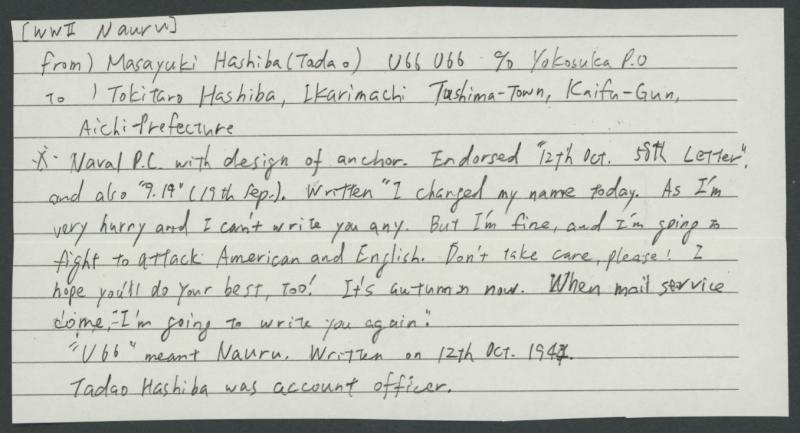 [WWII Nauru]
from) Masayuki Hashiba (Tadao) U66 U66 % Yokosuka P.O
To ) Tokitaro Hashiba, Ikarimachi Tsushima-Town, Kaifu-Gun,
Aichi Prefecture
※ Naval P.C. with design of anchor. Endorsed "12th Oct. 58th Letter",
and also "9.19" (19th Sep.). Written "I changed my name today. As I'm
very hurry and I can't write you any. But I'm fine, and I'm going to
fight to attack American and English. Don't take care, please! I
hope you'll do your best, too! It's autumn now. When mail service
come, I'm going to write you again".
"U66" meant Nauru. Written on 12th Oct.
Tadao Hashiba was account officer.